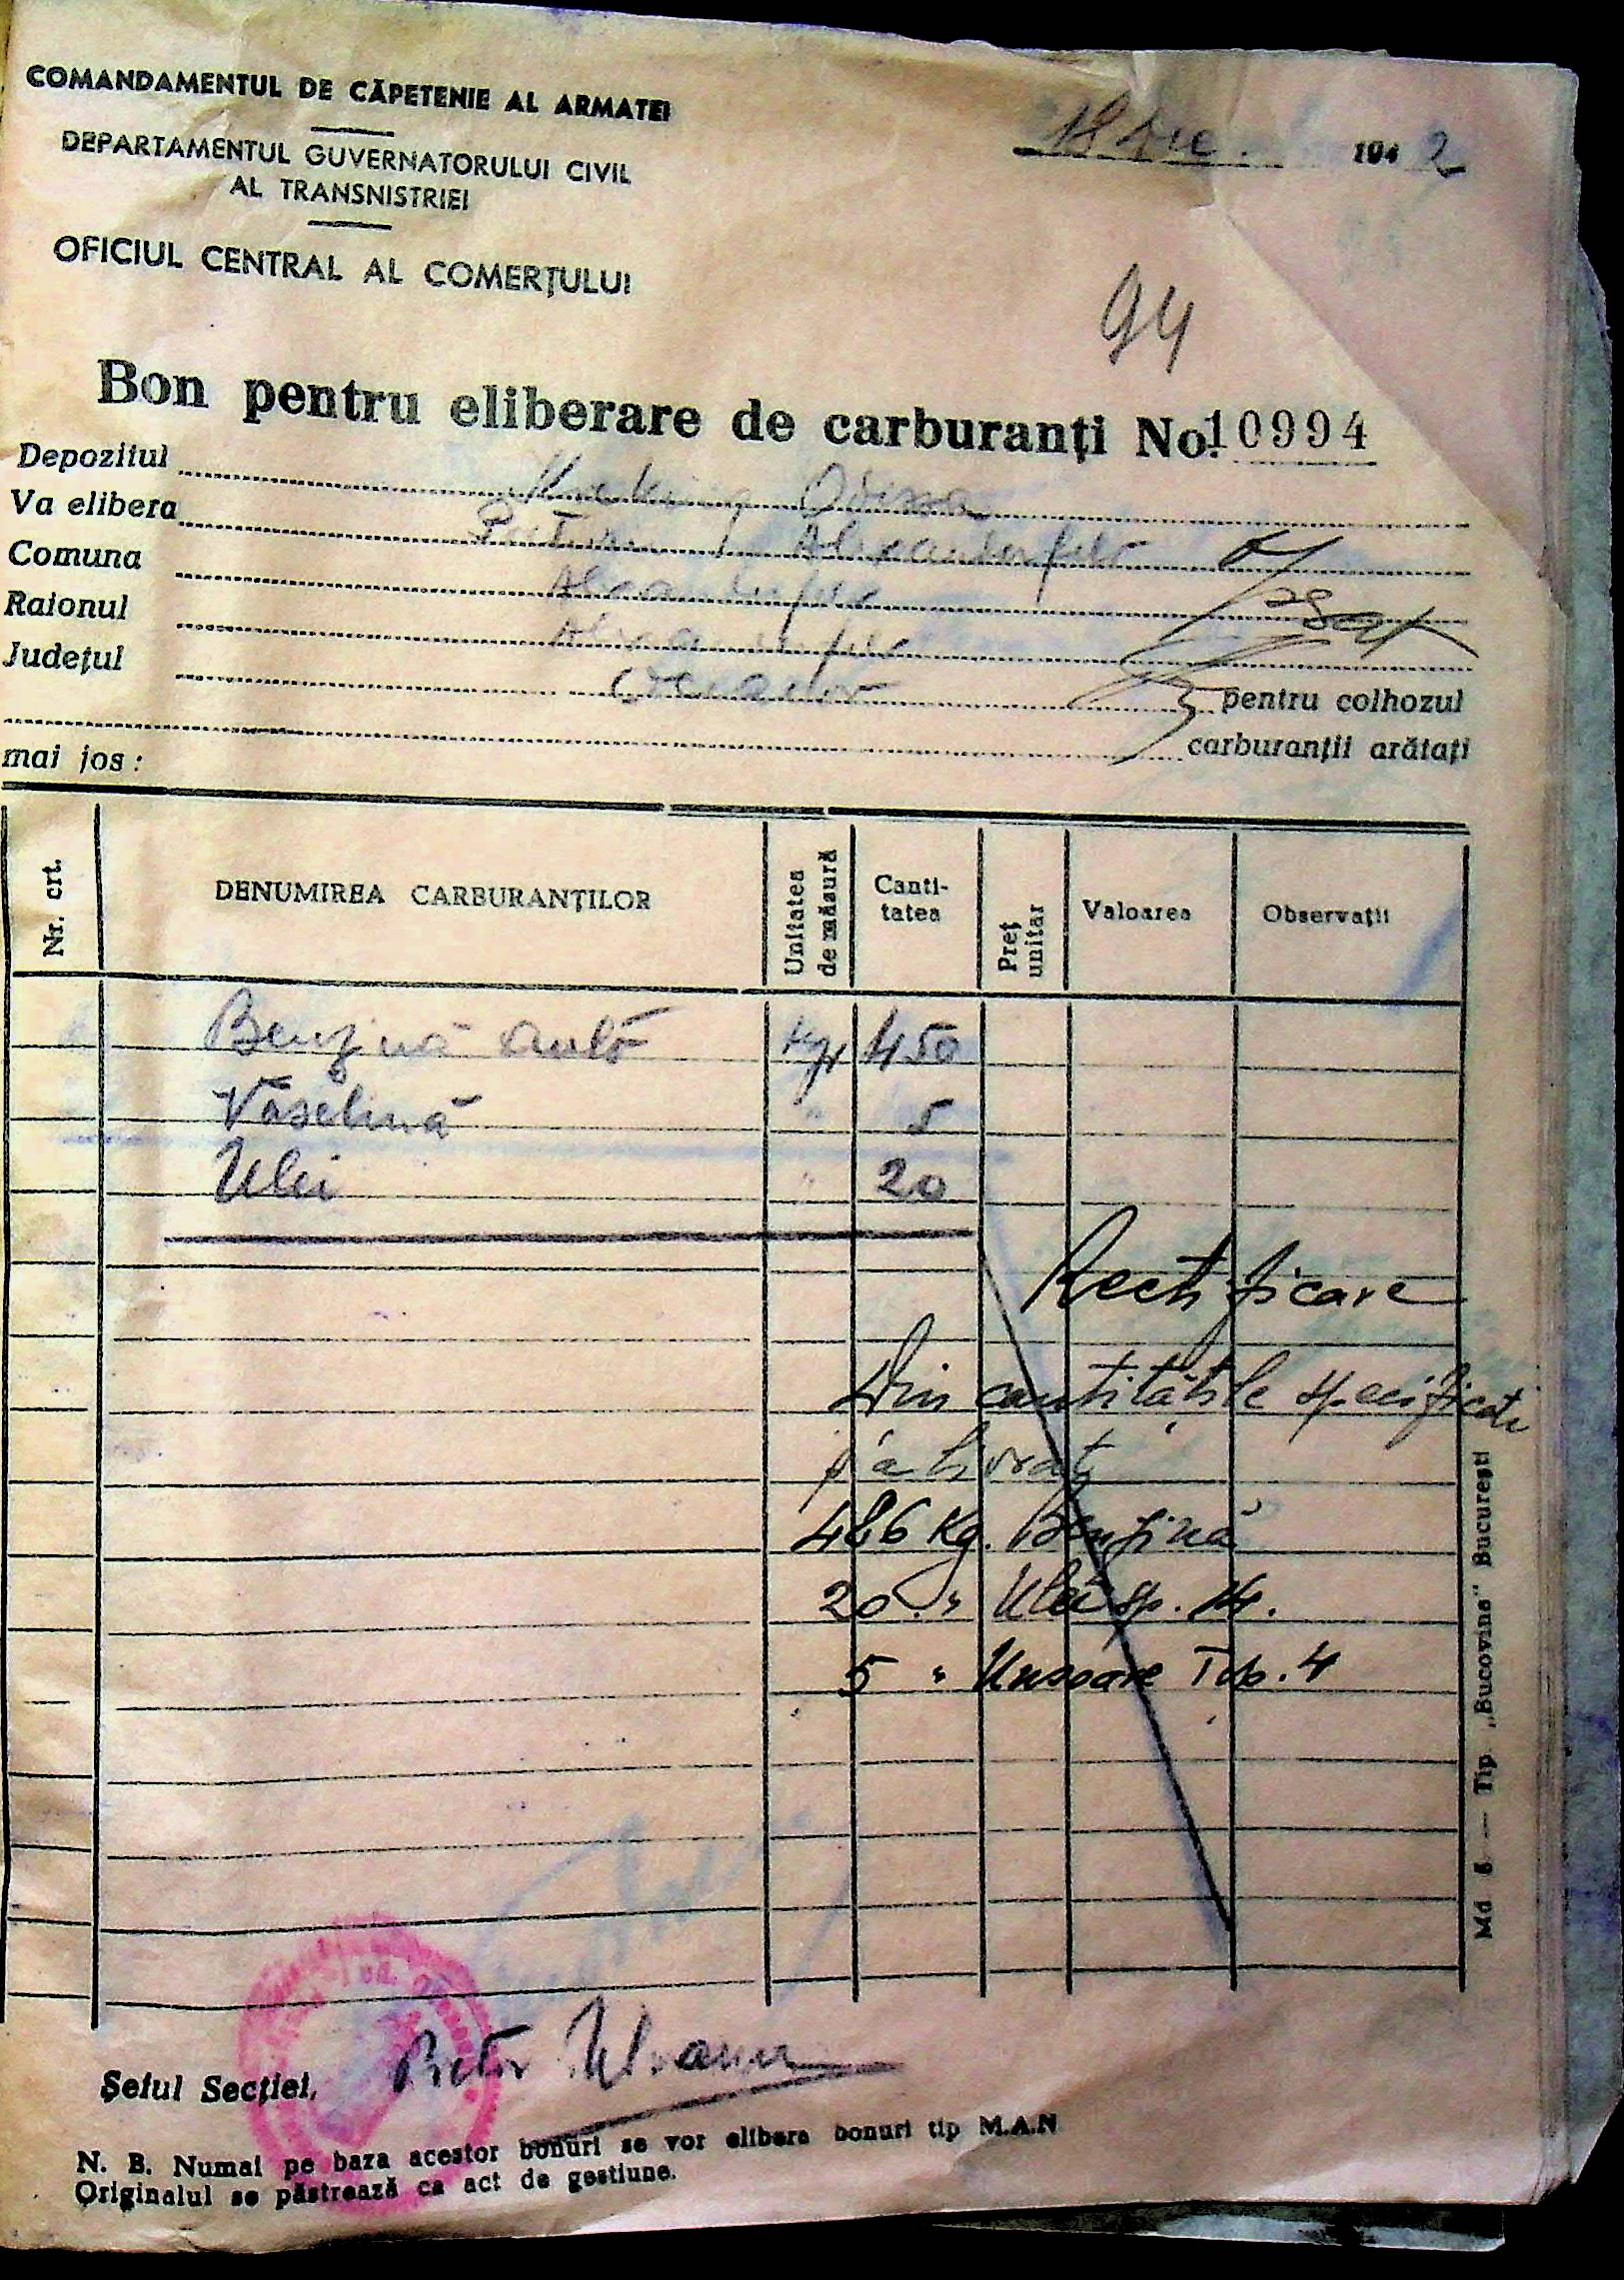 COMANDAMENTUL DE CĂPETENIE AL ARMATEI
DEPARTAMENTUL GUVERNATORULUI CIVIL
AL TRANSNISTRIEI
OFICIUL CENTRAL AL COMERŢULUI
18 Dec. 1942
94
Bon pentru eliberare de carburanţi No. 10994
Depozitul Odesa
Va elibera Alexanderfeld
Comuna
Raionul
Judeţul pentru colhozul
carburanţii arătaţi
mai jos :
Nr. crt. DENUMIREA CARBURANŢILOR Unitatea de măsură Canti-tatea Preţ unitar Valoarea Observaţii
Benzină auto Kgr 450
Vaselină " 5
Ulei " 20
Rectificare
Din cantitățile specificate
s'a livrat
486 Kg. Benzină
20 " Ulei sp. 14.
5 " Unsoare Tip. 4
Md 5 — Tip. „Bucovina" Bucureşti
Şeful Secţiei,
N. B. Numai pe baza acestor bonuri se vor elibera bonuri tip M.A.N
Originalul se păstrează ca act de gestiune.